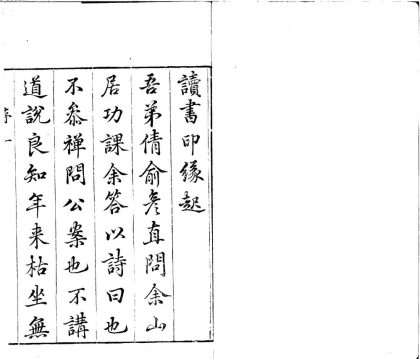 讀書印緣起
吾弟倩俞彥直問余山
居功課余答以詩曰也
不叅禪問公案也不講
道說良知年来枯坐無
序一